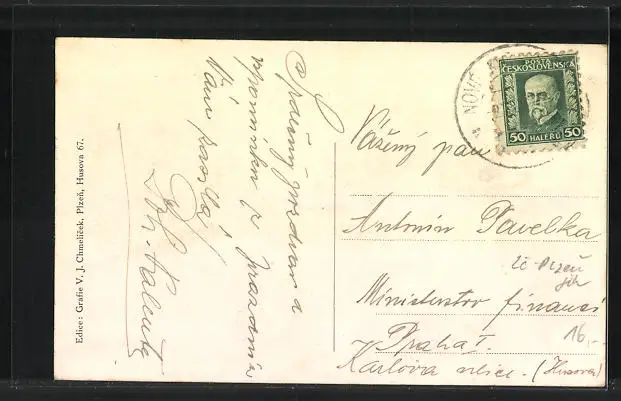 Edice: Grafie V. J. Chmelíček, Plzeň, Husova 67.
Srdečný pozdrav a
vzpomínku z
Vám posílá
NOVÉ
POŠTA
ČESKOSLOVENSKÁ
50 HALÉŘŮ 50
Vážený pan
Antonín Pavelka
Ministerstvo financí
Praha I.
Karlova ulice. (Husova)
Plzeň
jih
16,-